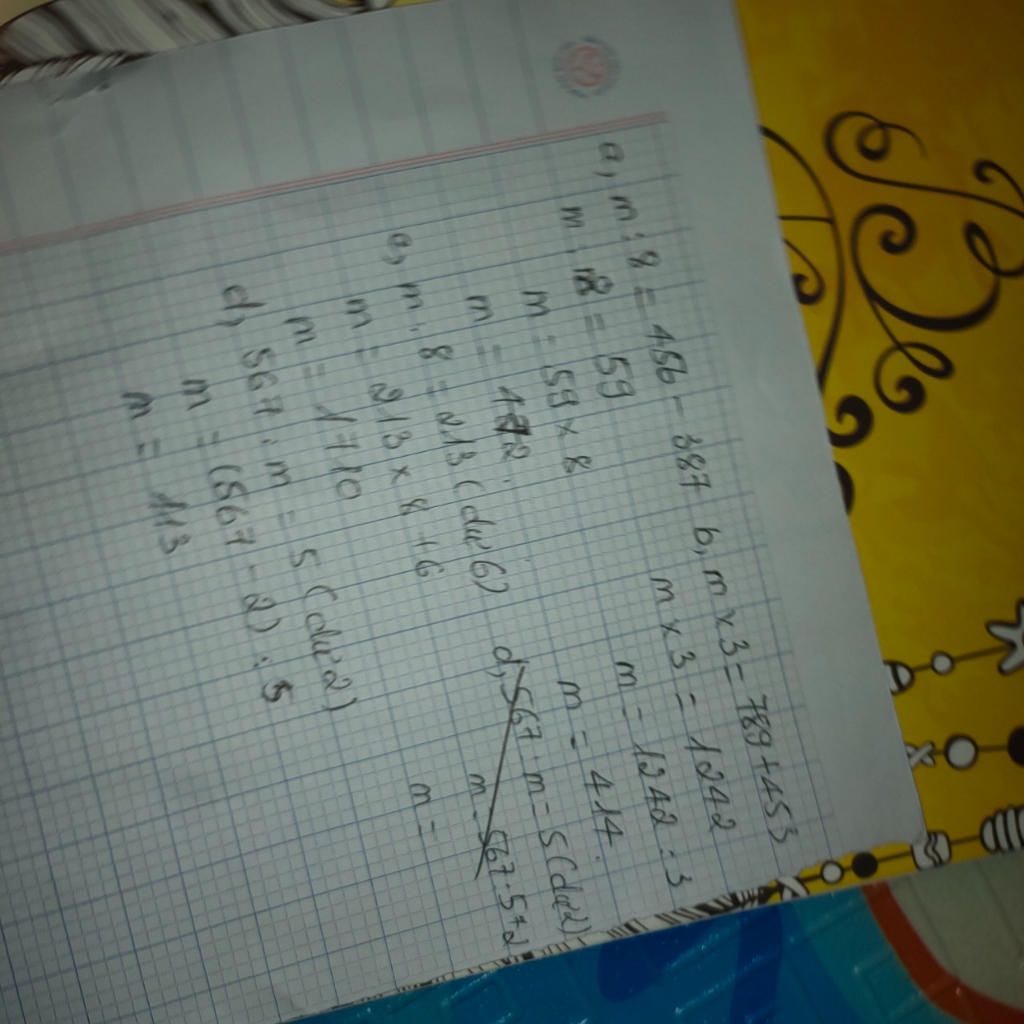 a, m : 8 = 456 - 387
m : 8 = 59
m = 59 x 8
m = 472
b, m x 3 = 789 + 453
m x 3 = 1242
m = 1242 : 3
m = 414
c, m : 8 = 213 (dư 6)
m = 213 x 8 + 6
m = 1710
d, 567 : m = 5 (dư 2)
m = 567 : 5 + 2
m =
d, 567 : m = 5 (dư 2)
m = (567 - 2) : 5
m = 113